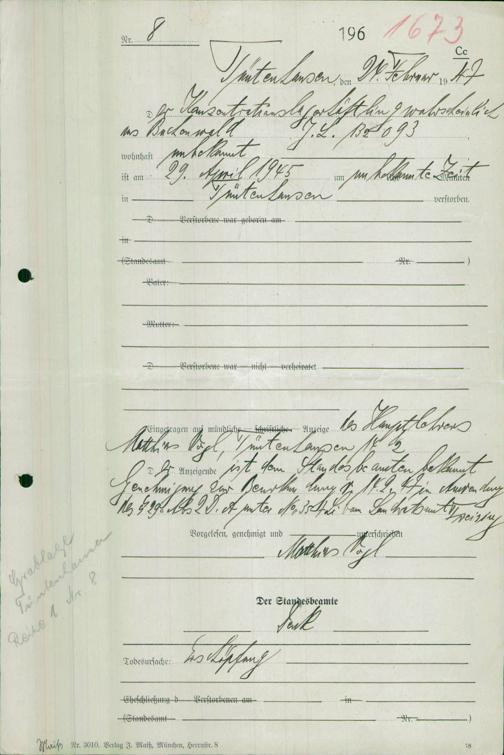 Nr. 8 196 1673
Cc
Tüntenhausen, den 24. Februar 1947
Der Konzentrationslagerhäftling wahrscheinlich
aus Buchenwald I.L. 132093
wohnhaft unbekannt
ist am 29. April 1945 um unbekannte Zeit Minuten
in Tüntenhausen verstorben.
D Verstorbene war geboren am
in
(Standesamt Nr. )
Vater:
Mutter:
D Verstorbene war — nicht — verheiratet
Eingetragen auf mündliche schriftliche Anzeige des Hauptlehrers
Matthias Vogl, Tüntenhausen N. 2
Der Anzeigende ist dem Standesbeamten bekannt
Genehmigung zur Beurkundung in Anwendung
des Landratsamt Freising
Vorgelesen, genehmigt und unterschrieben
Matthias Vogl
Der Standesbeamte
Denk
Todesursache: Erschöpfung
Eheschließung d Verstorbenen am in
(Standesamt Nr. )
Maiß Nr. 3010. Verlag J. Maiß, München, Herrnstr. 8
Grablage
Tüntenhausen
Reihe 1 Nr. 8